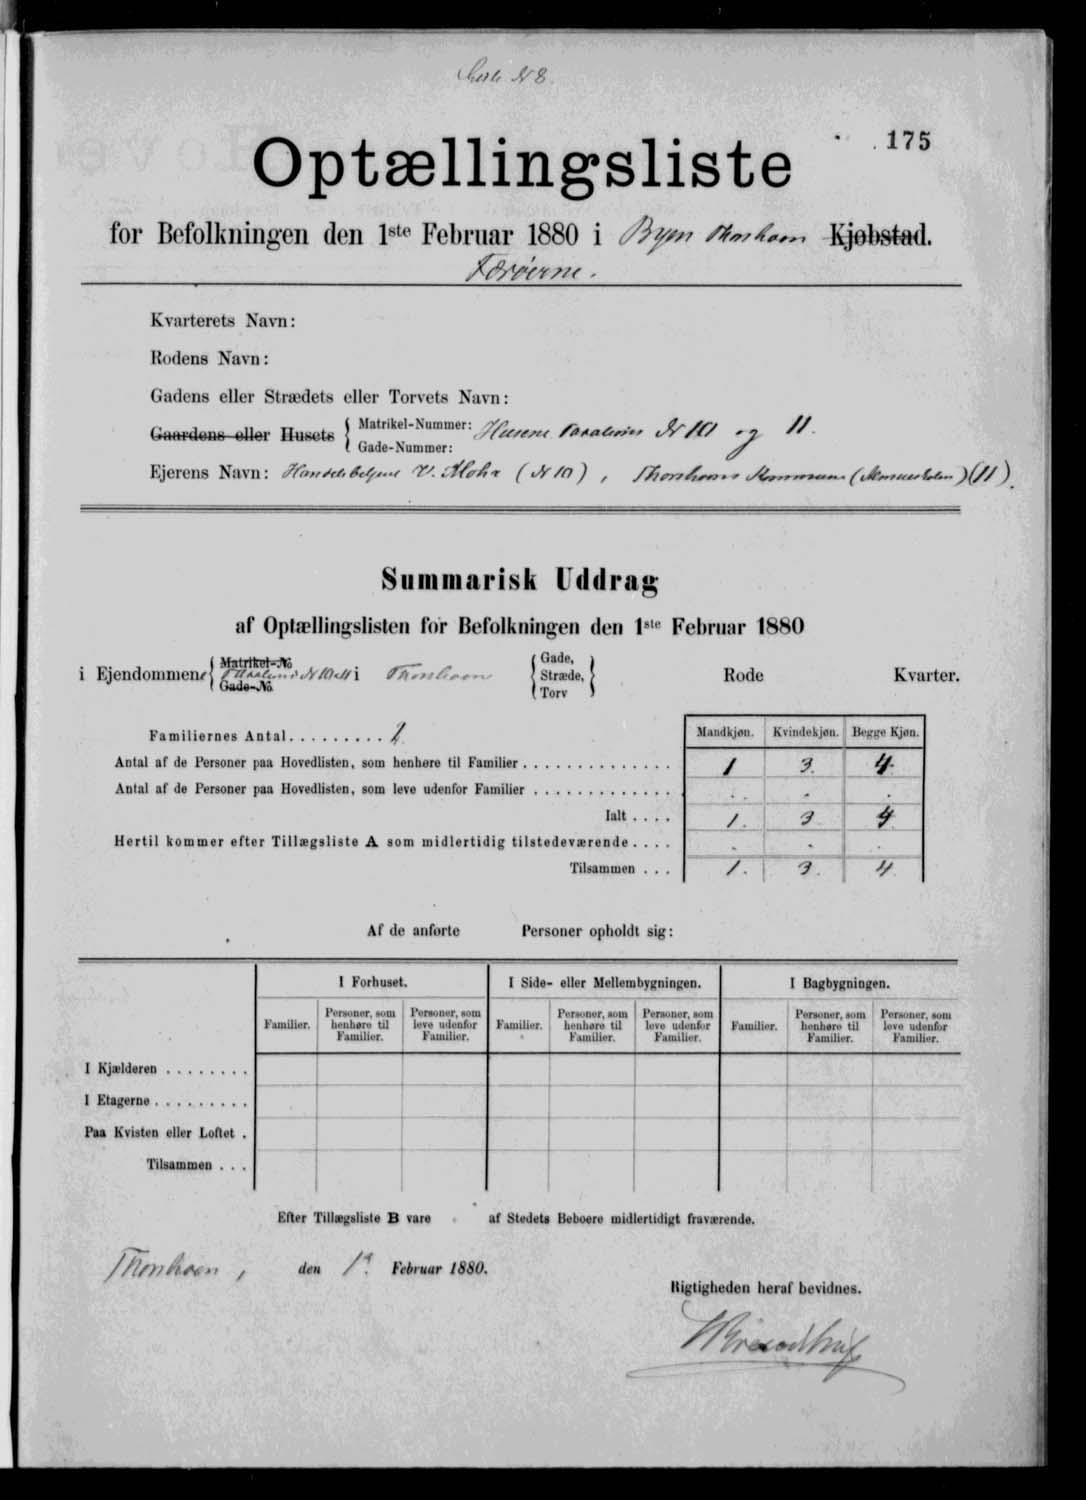 Liste N 8.
175
Optællingsliste
for Befolkningen den 1ste Februar 1880 i Byen Thorshavn Kjøbstad.
Færøerne.
Kvarterets Navn:
Rodens Navn:
Gadens eller Strædets eller Torvets Navn:
Gaardens eller Husets { Matrikel-Nummer: Husene N 10 og 11.
Gade-Nummer:
Ejerens Navn: Handelsbetjent V. Mohr (N 10), Thorshavns Kommune (Almueskolen) (11).
Summarisk Uddrag
af Optællingslisten for Befolkningen den 1ste Februar 1880
i Ejendommene { Matrikel-No Gade-No N 10 & 11 i Thorshavn { Gade, Stræde, Torv } Rode Kvarter.
Mandkjøn. Kvindekjøn. Begge Kjøn.
Familiernes Antal......... 2
Antal af de Personer paa Hovedlisten, som henhøre til Familier.............. 1 3. 4.
Antal af de Personer paa Hovedlisten, som leve udenfor Familier.............. . . .
Ialt.... 1. 3 4.
Hertil kommer efter Tillægsliste A som midlertidig tilstedeværende.... . . .
Tilsammen... 1. 3. 4.
Af de anførte Personer opholdt sig:
I Forhuset. I Side- eller Mellembygningen. I Bagbygningen.
Familier. Personer, som henhøre til Familier. Personer, som leve udenfor Familier. Familier. Personer, som henhøre til Familier. Personer, som leve udenfor Familier. Familier. Personer, som henhøre til Familier. Personer, som leve udenfor Familier.
I Kjælderen........
I Etagerne.........
Paa Kvisten eller Loftet.
Tilsammen...
Efter Tillægsliste B vare . af Stedets Beboere midlertidigt fraværende.
Thorshavn, den 1st Februar 1880.
Rigtigheden heraf bevidnes.